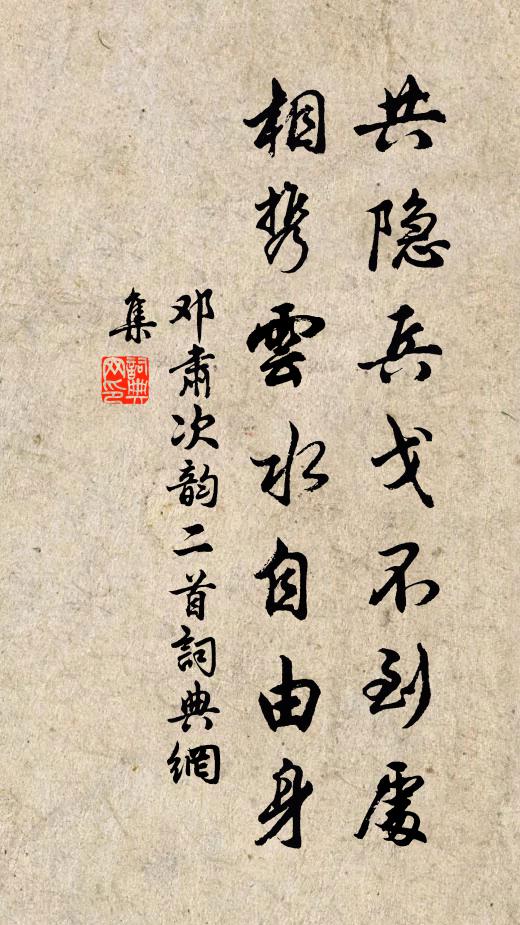 共隐兵戈不到處
相携雲水自由身
邓肅次韵二首詞典網
集
詞典网印